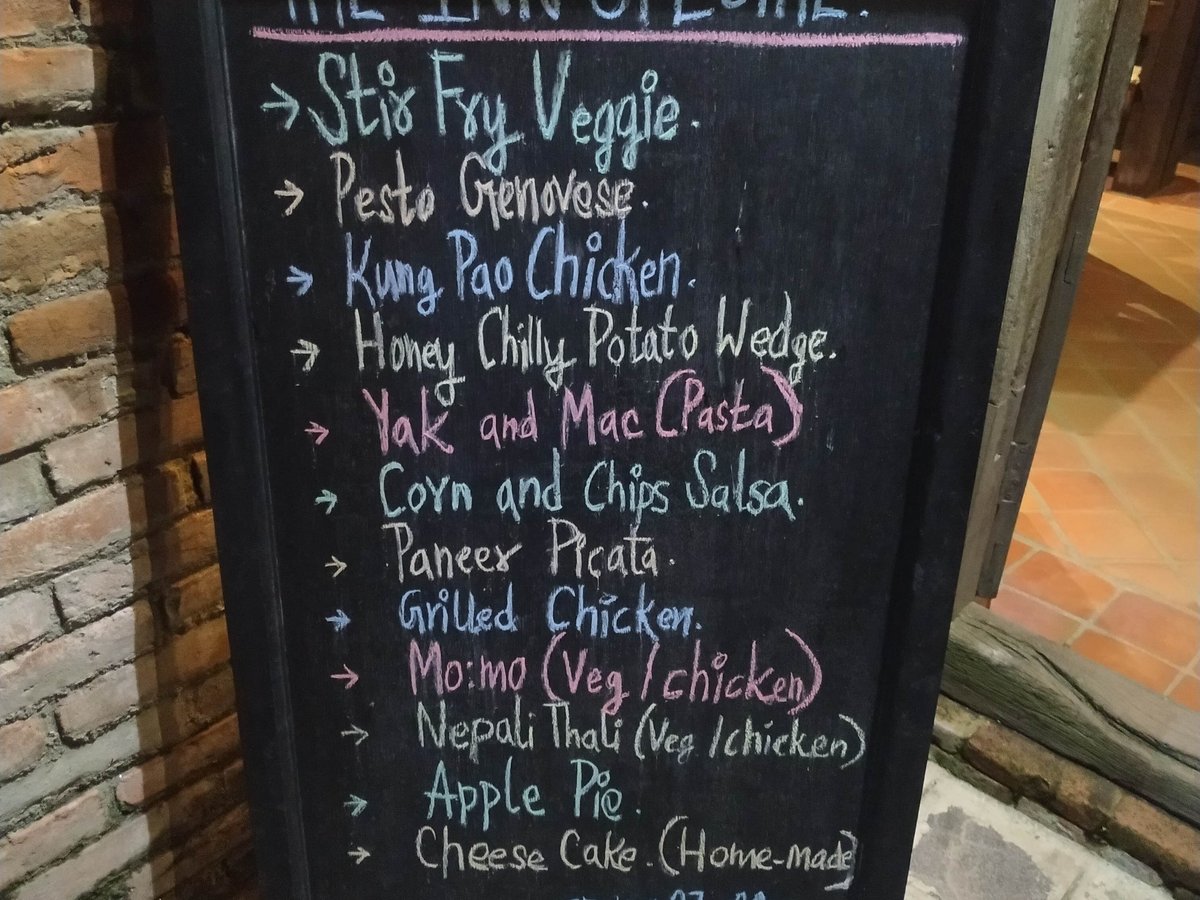 THE INN SPECIAL.
→ Stir Fry Veggie.
→ Pesto Genovese.
→ Kung Pao Chicken.
→ Honey Chilly Potato Wedge.
→ Yak and Mac (Pasta)
→ Corn and Chips Salsa.
→ Paneer Picata.
→ Grilled Chicken.
→ Mo:mo (Veg / chicken)
→ Nepali Thali (Veg / chicken)
→ Apple Pie.
→ Cheese Cake. (Home-made)